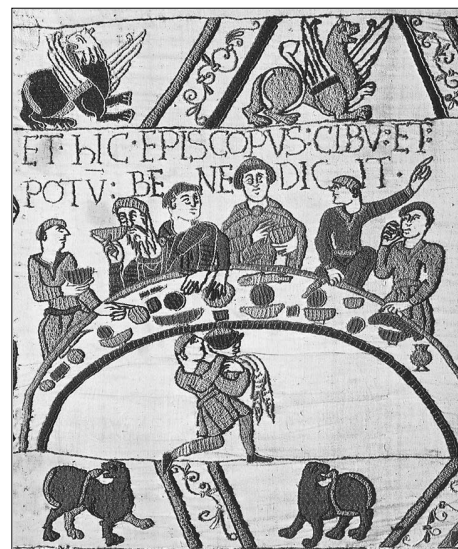 ET hIC · EPISCOPVS : CIBV : ET :
POTV : BE NE DIC IT ·